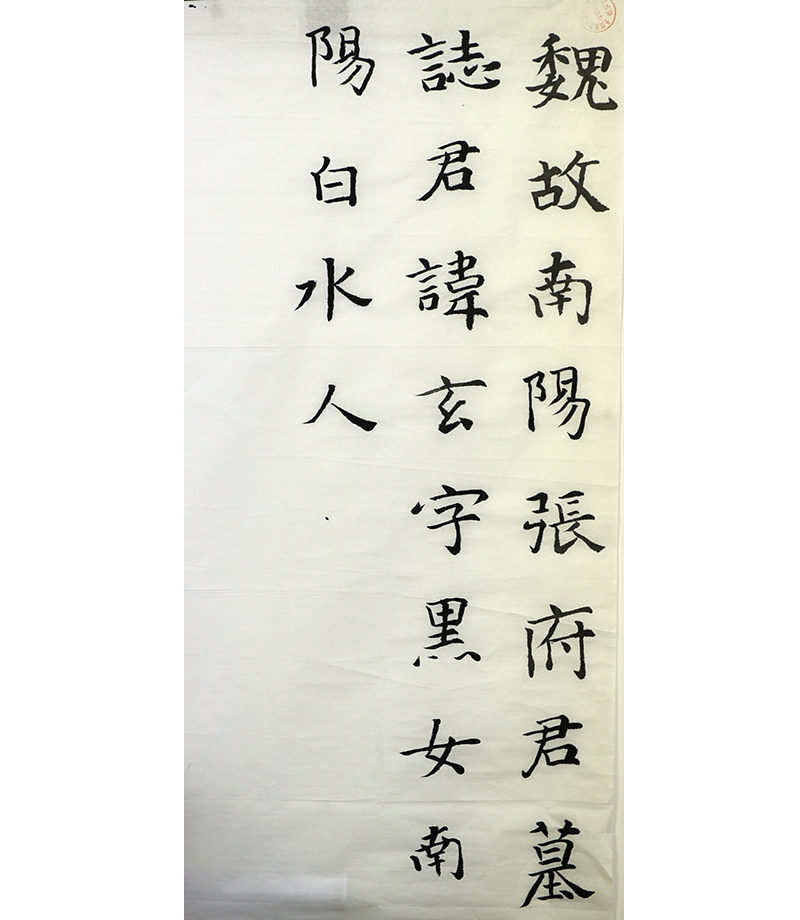 魏故南陽張府君墓
誌君諱玄字黑女南
陽白水人